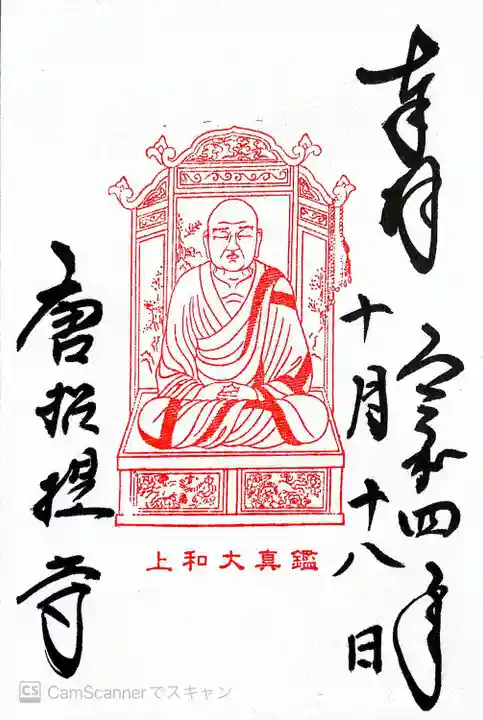 奉拝
令和四年
十月十八日
上和大真鑑
唐招提寺
CS CamScannerでスキャン